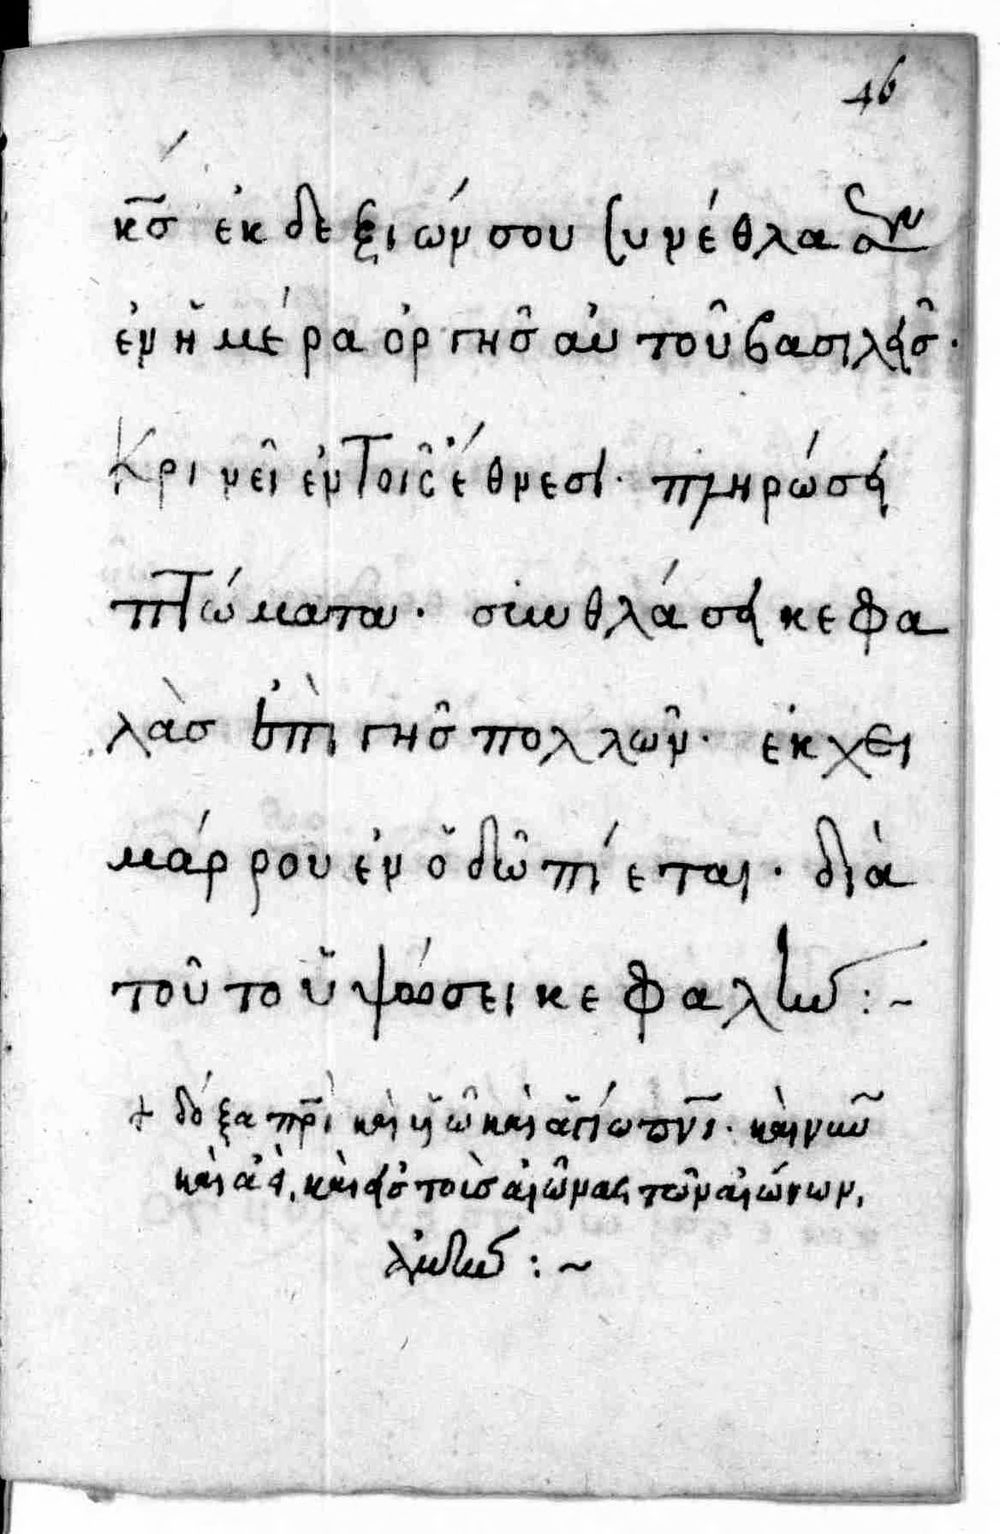 46
κ̅σ̅ ἐκ δεξιών σου συνέθλασεν
ἐν ἡμέρα ὀργῆς αὐτοῦ βασιλεῖς·
Κρινεῖ ἐν τοῖς ἔθνεσι· πληρώσει
πτώματα· συνθλάσει κεφα
λὰς ἐπὶ γῆς πολλῶν· ἐκ χει
μάρρου ἐν ὁδῶ πίεται· διὰ
τοῦτο ὑψώσει κεφαλήν :~
+ δόξα πρ̅ι καὶ υἱῶ καὶ ἁγίω πν̅ι· καὶ νῦν
καὶ ἀεὶ, καὶ εἰς τοὺς αἰῶνας τῶν αἰώνων,
ἀμήν :~